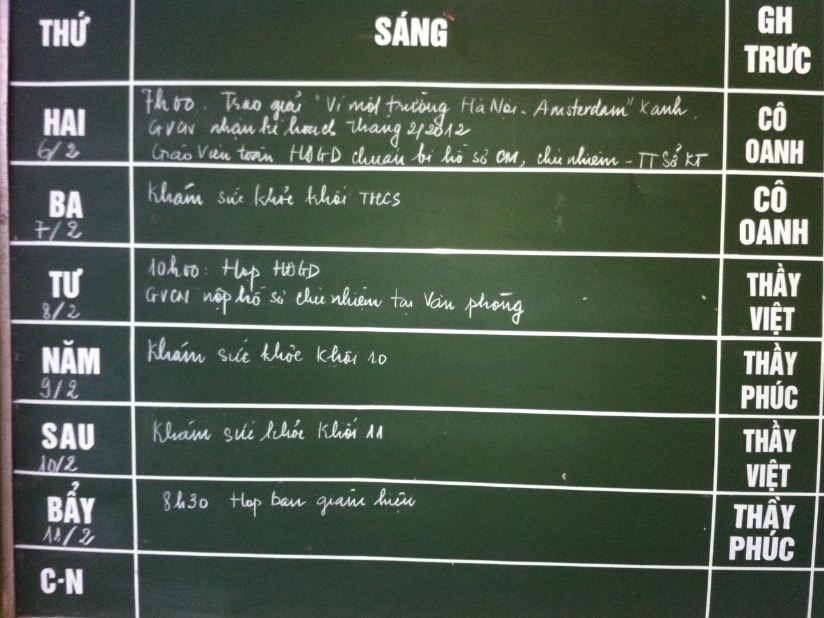 THỨ
SÁNG
GH TRƯC
HAI
6/2
7h00. Trao giải "Vì một trường Hà Nội - Amsterdam" xanh.
GVCN nhận kế hoạch tháng 2/2012
Giáo viên toàn HĐGD chuẩn bị hồ sơ CM, chủ nhiệm - TT Sở KT
CÔ OANH
BA
7/2
Khám sức khỏe khối THCS
CÔ OANH
TƯ
8/2
10h00: Họp HĐGD
GVCN nộp hồ sơ chủ nhiệm tại Văn phòng
THẦY VIỆT
NĂM
9/2
Khám sức khỏe khối 10
THẦY PHÚC
SAU
10/2
Khám sức khỏe khối 11
THẦY VIỆT
BẨY
11/2
8h30 Họp ban giám hiệu
THẦY PHÚC
C-N